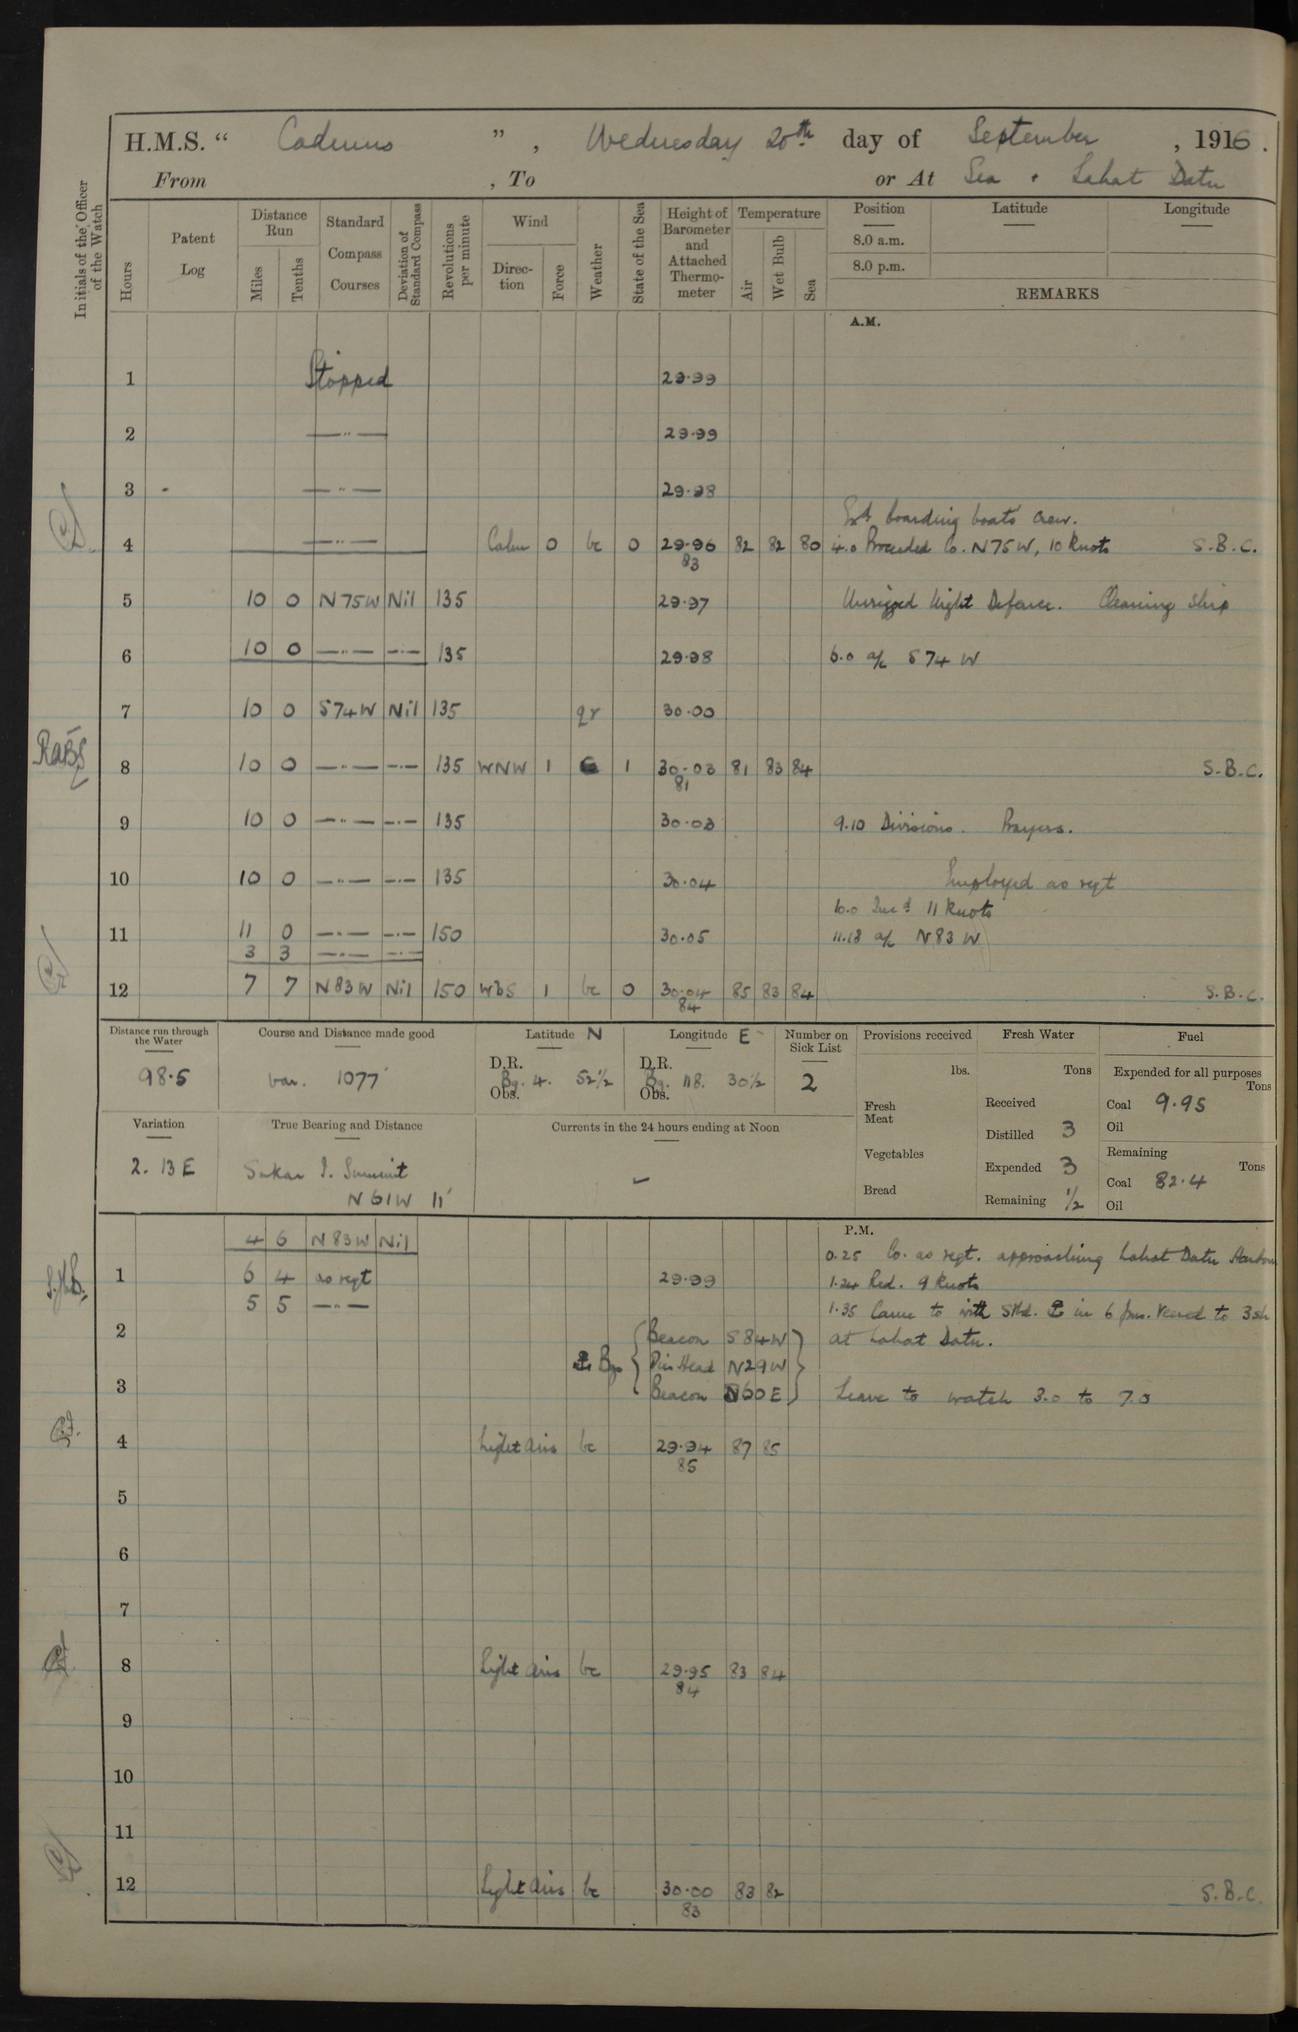 H.M.S. “ Cadmus ” , Wednesday 20th day of September , 1916 .
From , To or At Sea & Lahat Datu
Initials of the Officer of the Watch
Hours
Patent Log
Distance Run
Miles
Tenths
Standard Compass Courses
Deviation of Standard Compass
Revolutions per minute
Wind
Direction
Force
Weather
State of the Sea
Height of Barometer and Attached Thermometer
Temperature
Air
Wet Bulb
Sea
Position
Latitude
Longitude
8.0 a.m.
8.0 p.m.
REMARKS
A.M.
1 Stopped 29.99
2 —"— 29.99
3 —"— 29.98
boarding boats crew.
4 —"— Calm 0 bc 0 29.96 83 82 82 80 4.0 Proceeded Co. N75W, 10 knots S.B.C.
5 10 0 N75W Nil 135 29.97 Unrigged Night Defence. Cleaning Ship
6 10 0 —"— —"— 135 29.98 6.0 a/c S74W
7 10 0 S74W Nil 135 qr 30.00
8 10 0 —"— —"— 135 WNW 1 1 30.03 81 81 83 84 S.B.C.
9 10 0 —"— —"— 135 30.03 9.10 Divisions. Prayers.
10 10 0 —"— —"— 135 30.04 Employed as reqt
10.0 Incd 11 knots
11 11 0 —"— —"— 150 30.05 11.18 a/c N83W
3 3 —"— —"—
12 7 7 N83W Nil 150 WbS 1 bc 0 30.04 84 85 83 84 S.B.C.
Distance run through the Water
98.5
Course and Distance made good
var. 1077
Latitude N
D.R.
Bg. 4. 52½
Obs.
Longitude E
D.R.
Bg. 118. 30½
Obs.
Number on Sick List
2
Provisions received
lbs.
Fresh Meat
Vegetables
Bread
Fresh Water
Tons
Received
Distilled 3
Expended 3
Remaining ½
Fuel
Expended for all purposes
Tons
Coal 9.95
Oil
Remaining
Tons
Coal 82.4
Oil
Variation
2. 13 E
True Bearing and Distance
Sakar I. Summit
N61W 11'
Currents in the 24 hours ending at Noon
P.M.
4 6 N83W Nil
0.25 Co. as reqt. approaching Lahat Datu Harbour
1 6 4 as reqt 29.99 1.24 Red. 9 knots
5 5 —"— 1.35 Came to with Stbd. ⚓ in 6 fms. Veered to 3 sh
2 Beacon S84W at Lahat Datu.
⚓ Bgs { Pin Head N29W }
3 Beacon N60E Leave to watch 3.0 to 7.0
4 Light airs bc 29.94 85 87 85
5
6
7
8 Light airs bc 29.95 84 83 84
9
10
11
12 Light airs bc 30.00 83 83 82 S.B.C.